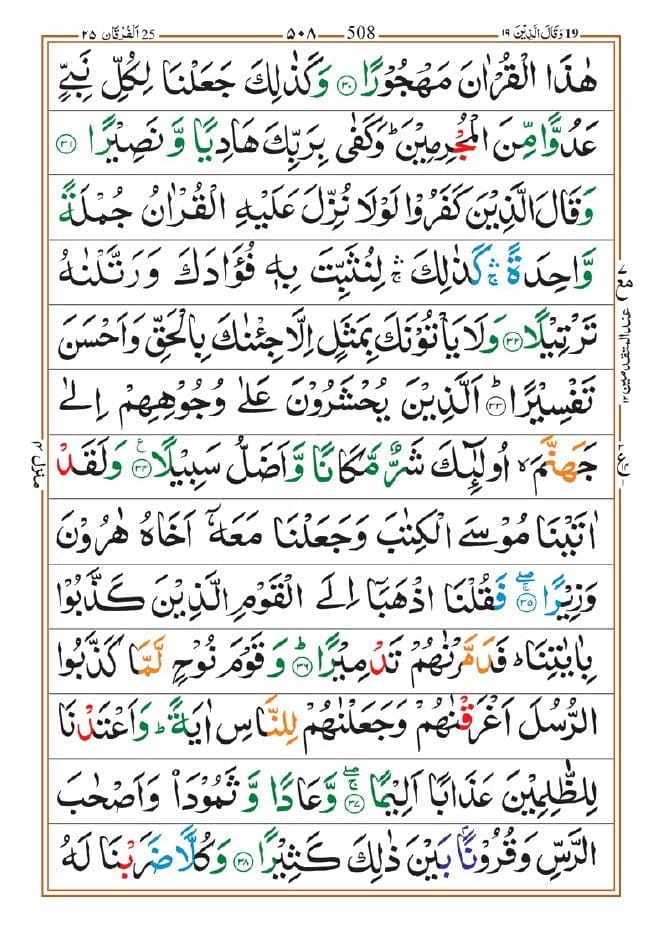 19 وَقَالَ الَّذِيْنَ ۱۹
508 ۵۰۸
25 اَلْفُرْقَان ۲۵
هٰذَا الْقُرْاٰنَ مَهْجُوْرًا ۟۝۳۰ وَكَذٰلِكَ جَعَلْنَا لِكُلِّ نَبِيٍّ
عَدُوًّا مِّنَ الْمُجْرِمِيْنَ ؕ وَكَفٰى بِرَبِّكَ هَادِيًا وَّ نَصِيْرًا ۝۳۱
وَقَالَ الَّذِيْنَ كَفَرُوْا لَوْلَا نُزِّلَ عَلَيْهِ الْقُرْاٰنُ جُمْلَةً
وَّاحِدَةً ۛۚ كَذٰلِكَ ۛۚ لِنُثَبِّتَ بِهٖ فُؤَادَكَ وَرَتَّلْنٰهُ
تَرْتِيْلًا ۝۳۲ وَلَا يَاْتُوْنَكَ بِمَثَلٍ اِلَّا جِئْنٰكَ بِالْحَقِّ وَاَحْسَنَ
تَفْسِيْرًا ؕ۝۳۳ اَلَّذِيْنَ يُحْشَرُوْنَ عَلٰى وُجُوْهِهِمْ اِلٰى
جَهَنَّمَ ۙ اُولٰٓئِكَ شَرٌّ مَّكَانًا وَّاَضَلُّ سَبِيْلًا ۠۝۳۴ وَلَقَدْ
اٰتَيْنَا مُوْسَى الْكِتٰبَ وَجَعَلْنَا مَعَهٗۤ اَخَاهُ هٰرُوْنَ
وَزِيْرًا ۖۚ۝۳۵ فَقُلْنَا اذْهَبَاۤ اِلَى الْقَوْمِ الَّذِيْنَ كَذَّبُوْا
بِاٰيٰتِنَا ؕ فَدَمَّرْنٰهُمْ تَدْمِيْرًا ؕ۝۳۶ وَقَوْمَ نُوْحٍ لَّمَّا كَذَّبُوا
الرُّسُلَ اَغْرَقْنٰهُمْ وَجَعَلْنٰهُمْ لِلنَّاسِ اٰيَةً ؕ وَاَعْتَدْنَا
لِلظّٰلِمِيْنَ عَذَابًا اَلِيْمًا ۖۚ۝۳۷ وَّعَادًا وَّ ثَمُوْدَا۟ وَاَصْحٰبَ
الرَّسِّ وَقُرُوْنًۢا بَيْنَ ذٰلِكَ كَثِيْرًا ۝۳۸ وَكُلًّا ضَرَبْنَا لَهُ
مع ۷
عند المتقدمين ۱۲
منزل ۴